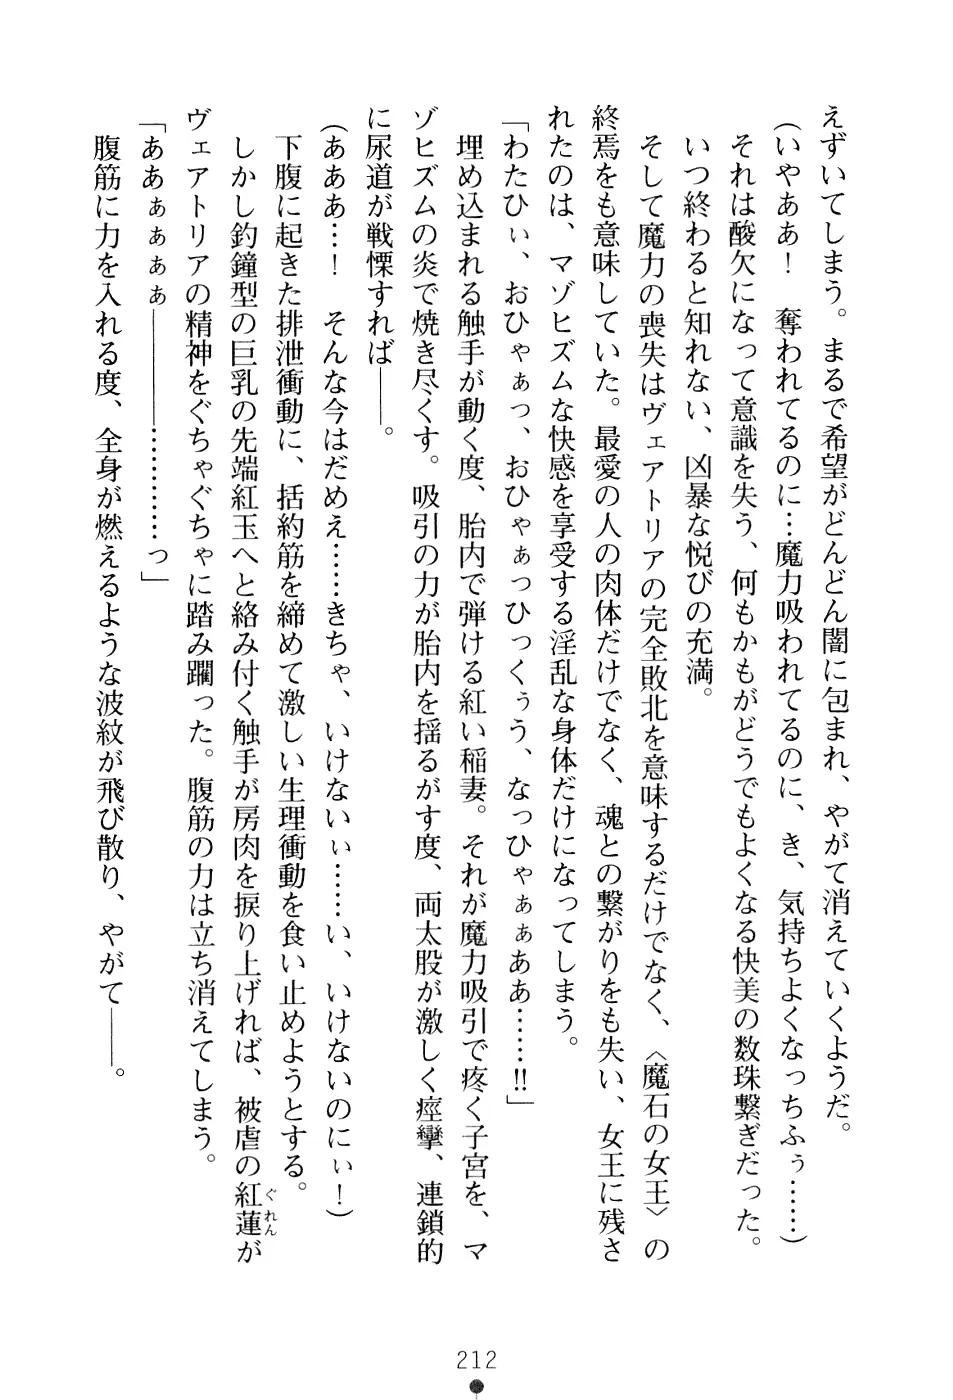 えずいてしまう。まるで希望がどんどん闇に包まれ、やがて消えていくようだ。
（いやああ！　奪われてるのに…魔力吸われてるのに、き、気持ちよくなっちふぅ……）
それは酸欠になって意識を失う、何もかもがどうでもよくなる快美の数珠繋ぎだった。
いつ終わると知れない、凶暴な悦びの充満。
そして魔力の喪失はヴェアトリアの完全敗北を意味するだけでなく、〈魔石の女王〉の
終焉をも意味していた。最愛の人の肉体だけでなく、魂との繋がりをも失い、女王に残さ
れたのは、マゾヒズムな快感を享受する淫乱な身体だけになってしまう。
「わたひぃ、おひゃぁっ、おひゃぁっひっくぅう、なっひゃぁぁああ……!!」
埋め込まれる触手が動く度、胎内で弾ける紅い稲妻。それが魔力吸引で疼く子宮を、マ
ゾヒズムの炎で焼き尽くす。吸引の力が胎内を揺るがす度、両太股が激しく痙攣、連鎖的
に尿道が戦慄すれば――。
（あああ…！　そんな今はだめえ……きちゃ、いけないぃ……い、いけないのにぃ！）
下腹に起きた排泄衝動に、括約筋を締めて激しい生理衝動を食い止めようとする。
しかし釣鐘型の巨乳の先端紅玉へと絡み付く触手が房肉を捩り上げれば、被虐の紅蓮（ぐれん）が
ヴェアトリアの精神をぐちゃぐちゃに踏み躙った。腹筋の力は立ち消えてしまう。
「ああぁぁぁぁ――――…………っ」
腹筋に力を入れる度、全身が燃えるような波紋が飛び散り、やがて――。
212